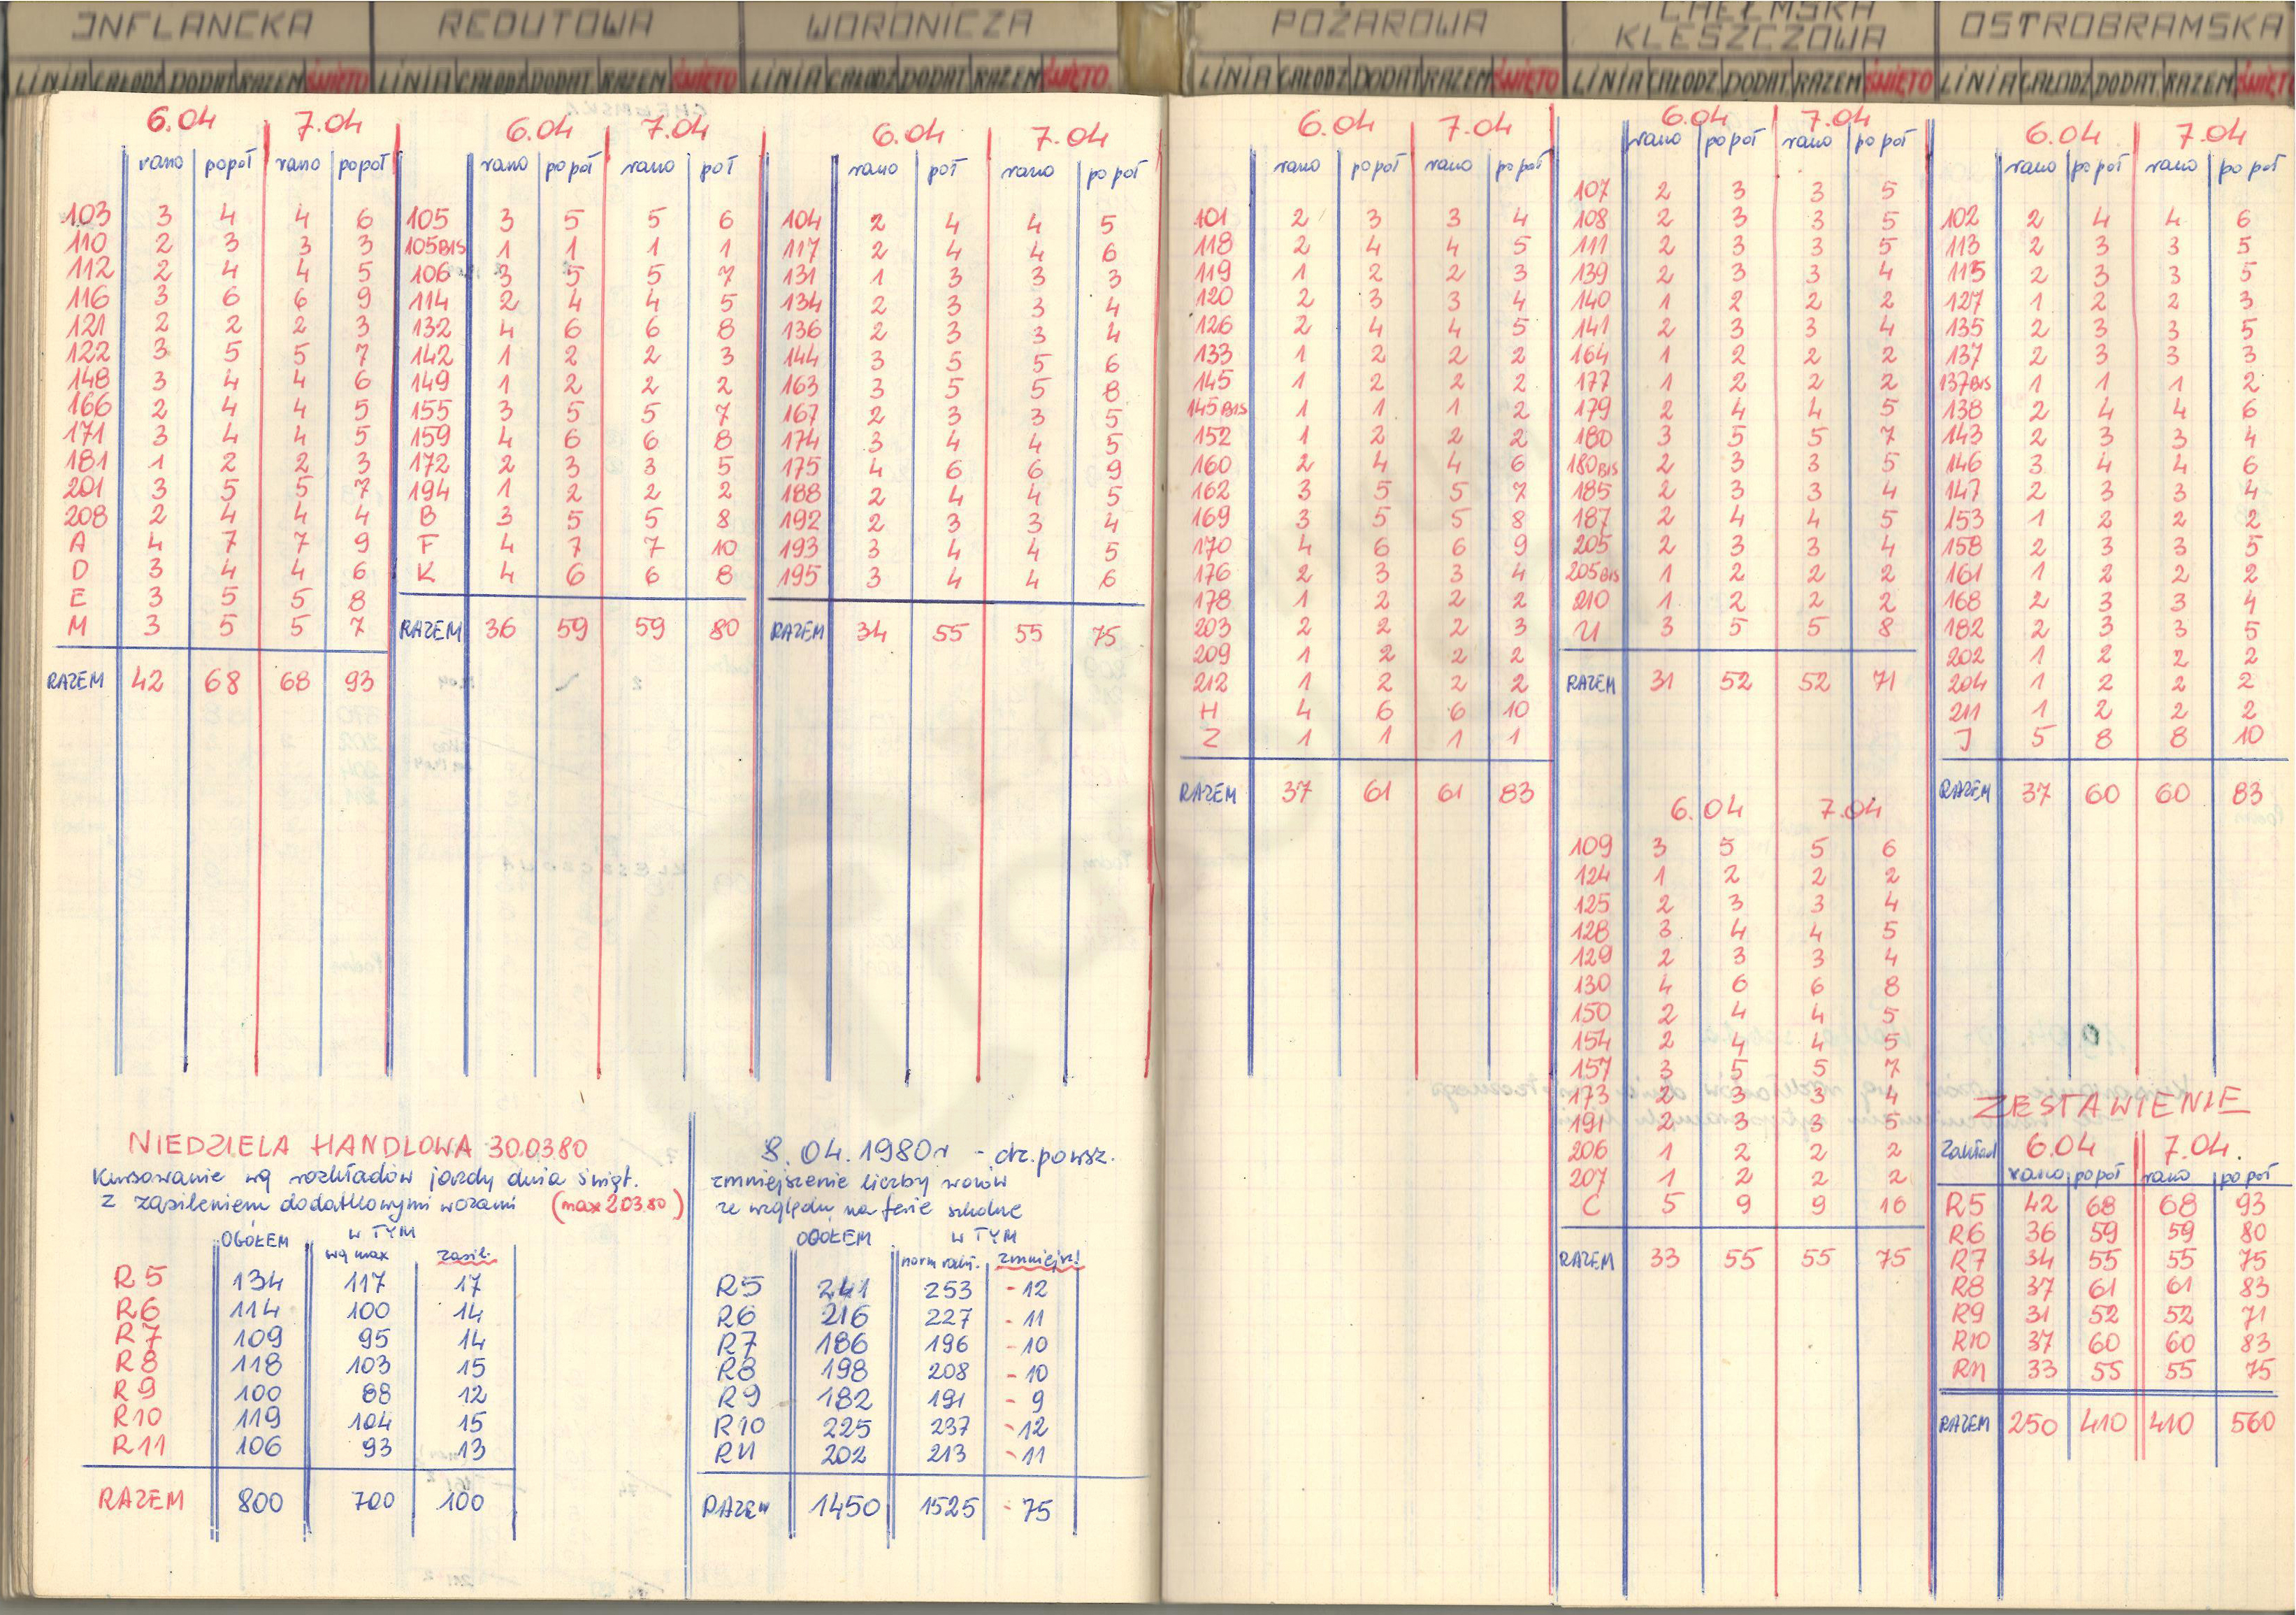 INFLANCKA
LINIA CAŁODZ DODAT RAZEM ŚWIĘTO
6.04 7.04
rano popoł rano popoł
103 3 4 4 6
110 2 3 3 3
112 2 4 4 5
116 3 6 6 9
121 2 2 2 3
122 3 5 5 7
148 3 4 4 6
166 2 4 4 5
171 3 4 4 5
181 1 2 2 3
201 3 5 5 7
208 2 4 4 4
A 4 7 7 9
D 3 4 4 6
E 3 5 5 8
M 3 5 5 7
RAZEM 42 68 68 93
REDUTOWA
LINIA CAŁODZ DODAT RAZEM ŚWIĘTO
6.04 7.04
rano popoł rano poł
105 3 5 5 6
105BIS 1 1 1 1
106 3 5 5 7
114 2 4 4 5
132 4 6 6 8
142 1 2 2 3
149 1 2 2 2
155 3 5 5 7
159 4 6 6 8
172 2 3 3 5
194 1 2 2 2
B 3 5 5 8
F 4 7 7 10
K 4 6 6 8
RAZEM 36 59 59 80
WORONICZA
LINIA CAŁODZ DODAT RAZEM ŚWIĘTO
6.04 7.04
rano poł rano popoł
104 2 4 4 5
117 2 4 4 6
131 1 3 3 3
134 2 3 3 4
136 2 3 3 4
144 3 5 5 6
163 3 5 5 8
167 2 3 3 5
174 3 4 4 5
175 4 6 6 9
188 2 4 4 5
192 2 3 3 4
193 3 4 4 5
195 3 4 4 6
RAZEM 34 55 55 75
NIEDZIELA HANDLOWA 30.03.80
Kursowanie wg rozkładów jazdy dnia świąt.
z zasileniem dodatkowymi wozami (max 2.03.80)
OGÓŁEM W TYM
wg max zasil.
R5 134 117 17
R6 114 100 14
R7 109 95 14
R8 118 103 15
R9 100 88 12
R10 119 104 15
R11 106 93 13
RAZEM 800 700 100
8.04.1980r - dz. powsz.
zmniejszenie liczby wozów
ze względu na ferie szkolne
OGÓŁEM W TYM
zmniejsz!
R5 241 253 -12
R6 216 227 -11
R7 186 196 -10
R8 198 208 -10
R9 182 191 -9
R10 225 237 -12
R11 202 213 -11
RAZEM 1450 1525 -75
POŻAROWA
LINIA CAŁODZ DODAT RAZEM ŚWIĘTO
6.04 7.04
rano popoł rano popoł
101 2 3 3 4
118 2 4 4 5
119 1 2 2 3
120 2 3 3 4
126 2 4 4 5
133 1 2 2 2
145 1 2 2 2
145BIS 1 1 1 2
152 1 2 2 2
160 2 4 4 6
162 3 5 5 7
169 3 5 5 8
170 4 6 6 9
176 2 3 3 4
178 1 2 2 2
203 2 2 2 3
209 1 2 2 2
212 1 2 2 2
H 4 6 6 10
Z 1 1 1 1
RAZEM 37 61 61 83
CHEŁMSKA
KLESZCZOWA
LINIA CAŁODZ DODAT RAZEM ŚWIĘTO
6.04 7.04
rano popoł rano popoł
107 2 3 3 5
108 2 3 3 5
111 2 3 3 5
139 2 3 3 4
140 1 2 2 2
141 2 3 3 4
164 1 2 2 2
177 1 2 2 2
179 2 4 4 5
180 3 5 5 7
180BIS 2 3 3 5
185 2 3 3 4
187 2 4 4 5
205 2 3 3 4
205BIS 1 2 2 2
210 1 2 2 2
U 3 5 5 8
RAZEM 31 52 52 71
6.04 7.04
109 3 5 5 6
124 1 2 2 2
125 2 3 3 4
128 3 4 4 5
129 2 3 3 4
130 4 6 6 8
150 2 4 4 5
154 2 4 4 5
157 3 5 5 7
173 2 3 3 4
191 2 3 3 5
206 1 2 2 2
207 1 2 2 2
C 5 9 9 16
RAZEM 33 55 55 75
OSTROBRAMSKA
LINIA CAŁODZ DODAT RAZEM ŚWIĘT
6.04 7.04
rano popoł rano popoł
102 2 4 4 6
113 2 3 3 5
115 2 3 3 5
127 1 2 2 3
135 2 3 3 5
137 2 3 3 3
137BIS 1 1 1 2
138 2 4 4 6
143 2 3 3 4
146 3 4 4 6
147 2 3 3 4
153 1 2 2 2
158 2 3 3 5
161 1 2 2 2
168 2 3 3 4
182 2 3 3 5
202 1 2 2 2
204 1 2 2 2
211 1 2 2 2
J 5 8 8 10
RAZEM 37 60 60 83
ZESTAWIENIE
Zakład 6.04 7.04.
rano popoł rano popoł
R5 42 68 68 93
R6 36 59 59 80
R7 34 55 55 75
R8 37 61 61 83
R9 31 52 52 71
R10 37 60 60 83
R11 33 55 55 75
RAZEM 250 410 410 560